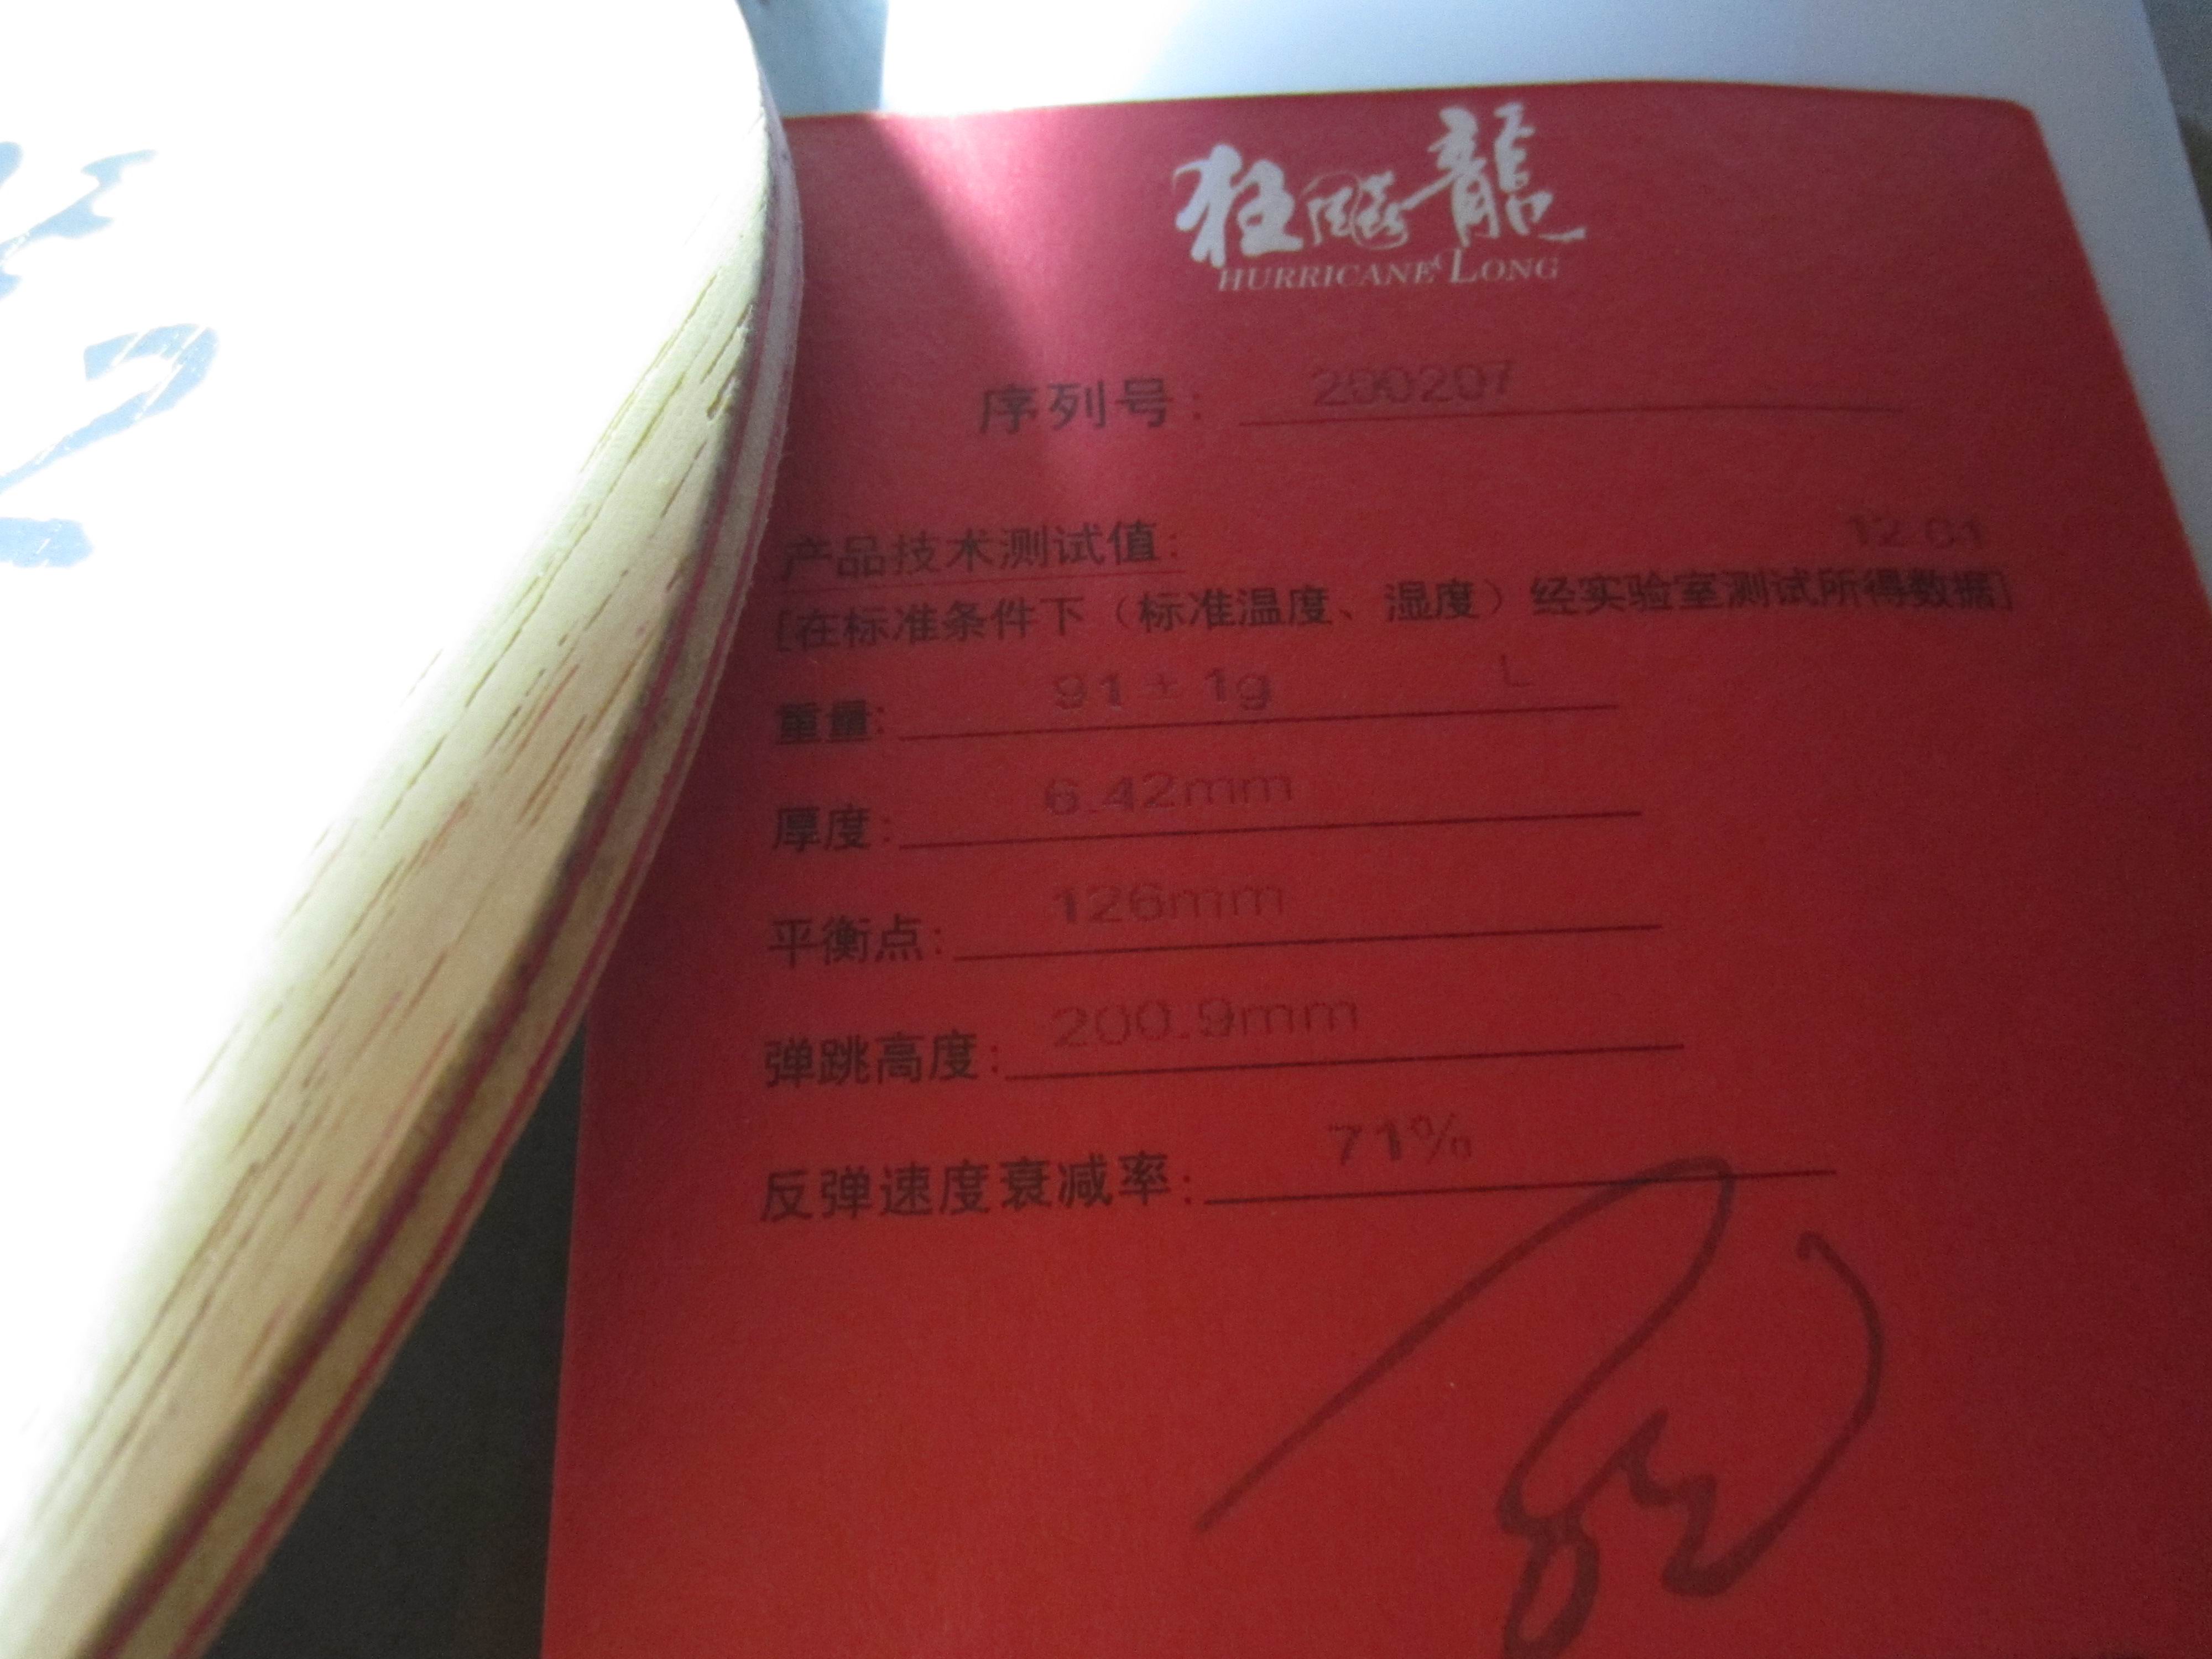 狂飚龍
HURRICANE LONG
序列号: 200207
产品技术测试值: 12.01
[在标准条件下（标准温度、湿度）经实验室测试所得数据]
重量: 91±1g L
厚度: 6.42mm
平衡点: 126mm
弹跳高度: 200.9mm
反弹速度衰减率: 71%